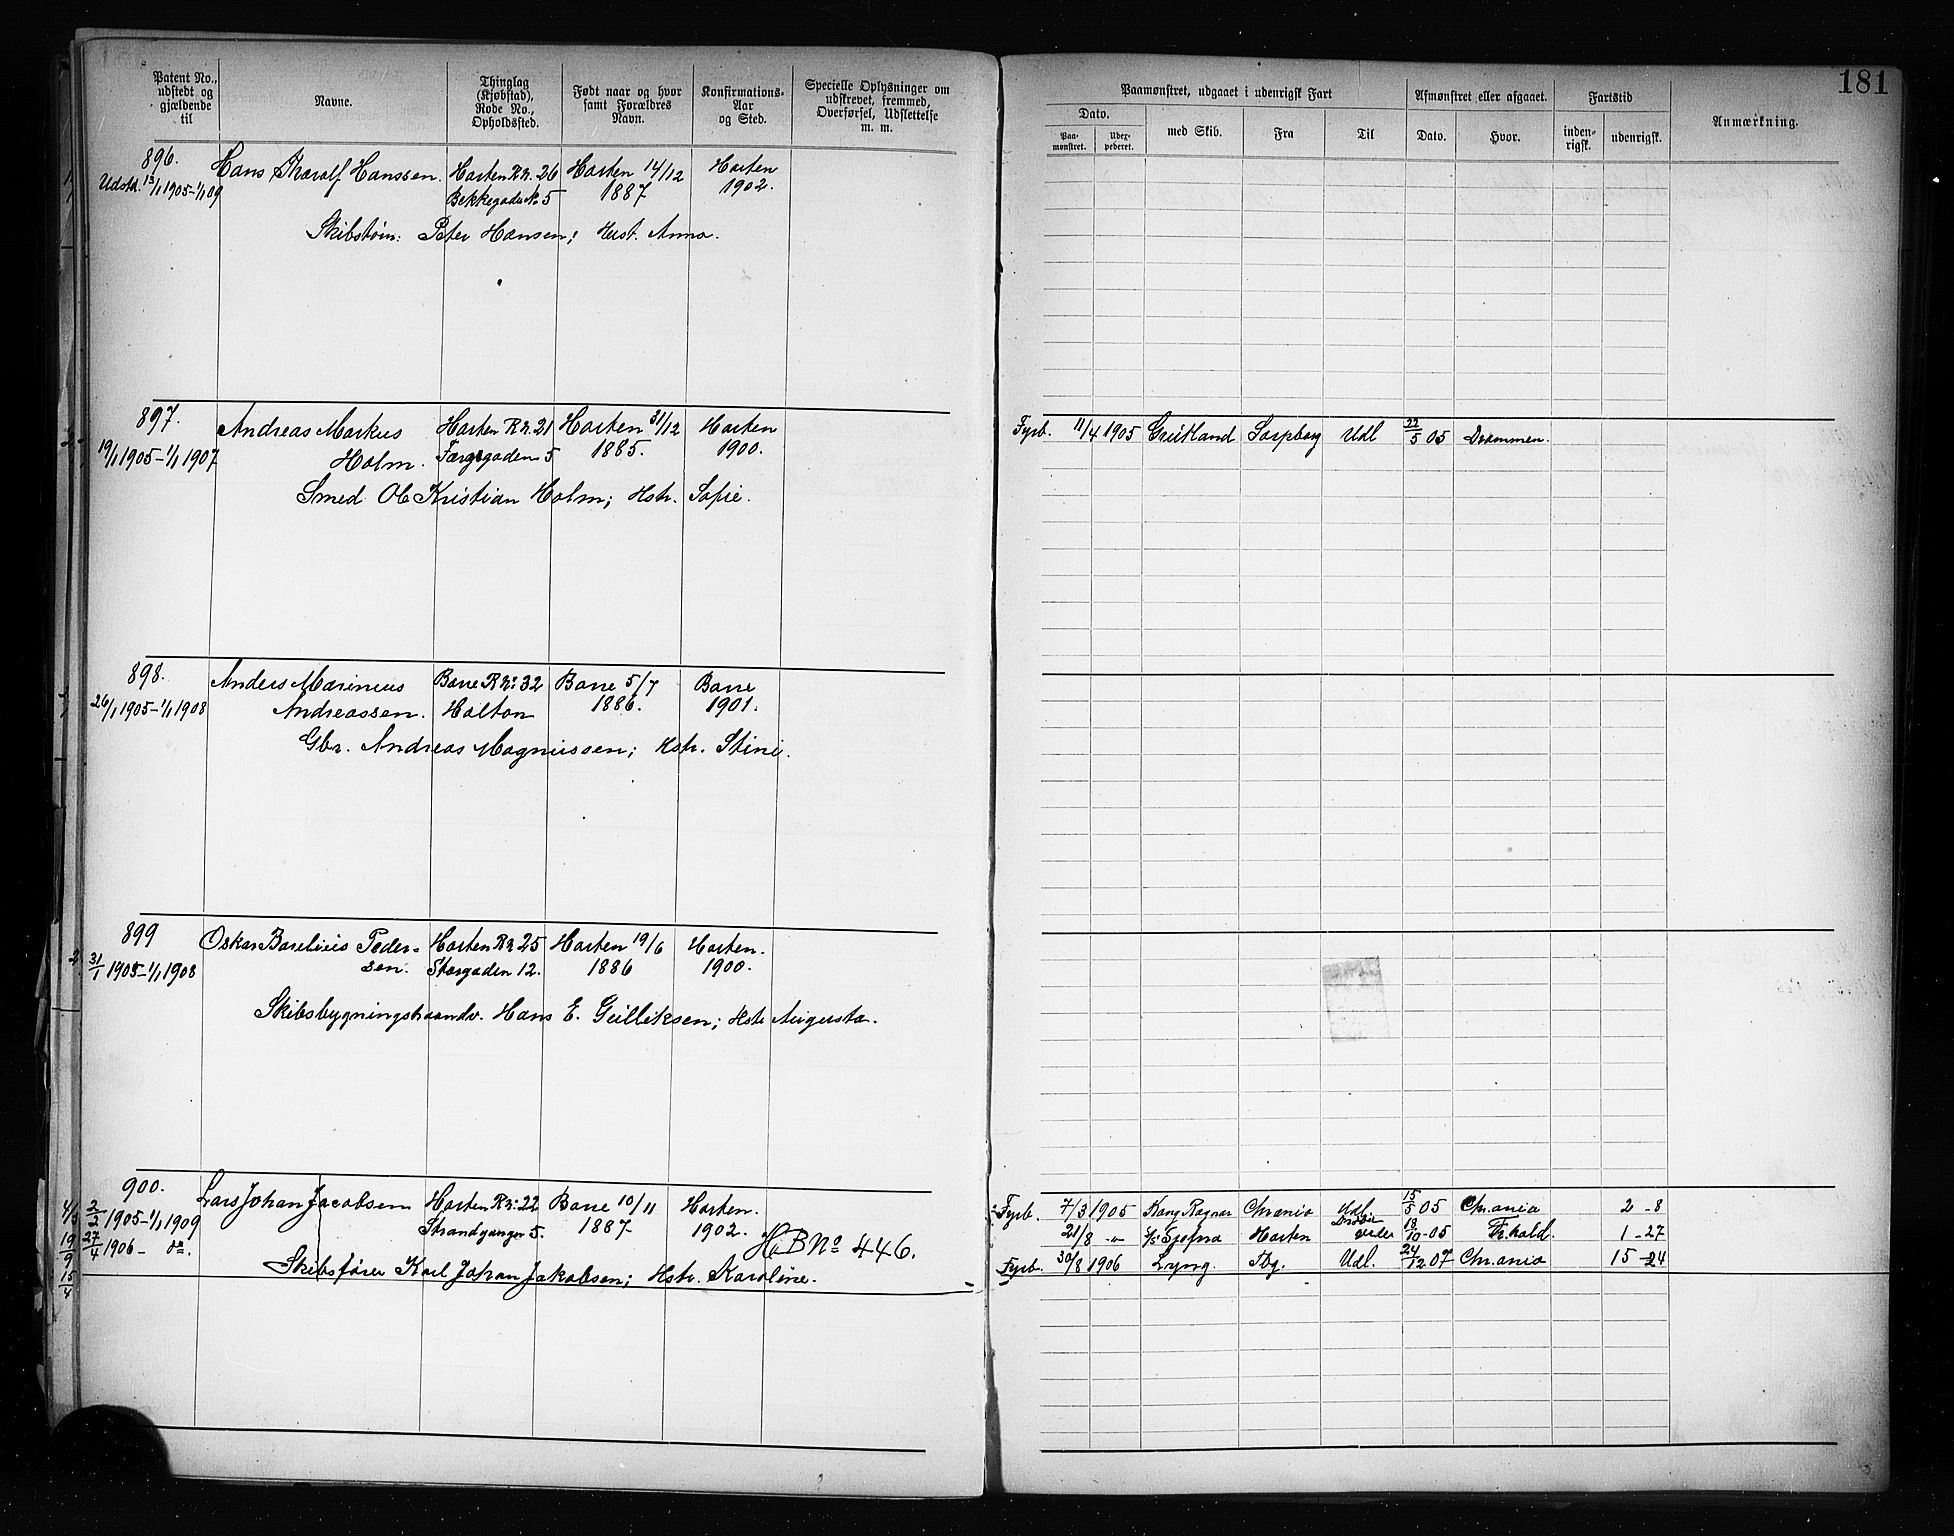 181
Patent No., udstedt og gjældende til
Navne.
Thinglag (Kjøbstad), Rode No., Opholdssted.
Født naar og hvor samt Forældres Navn.
Konfirmations-Aar og Sted.
Specielle Oplysninger om udskrevet, fremmed, Overførsel, Udslettelse m. m.
Paamønstret, udgaaet i udenrigsk Fart
Dato.
Paamønstret.
Udexpederet.
med Skib.
Fra
Til
Afmønstret eller afgaaet.
Dato.
Hvor.
Fartstid
indenrigsk.
udenrigsk.
Anmærkning.
896. Hans Tharalf Hanssen. Horten R.n. 26 Horten 14/12 Horten
Udstd. 13/1 1905-1/1 09 Bekkegaden No 5 1887 1902.
Skibstøm: Peter Hansen; Hust. Anna.
897. Andreas Markus Horten R.n. 21 Horten 31/12 Horten
19/1 1905-1/1 1907 Holm. Færgegaden 5 1885. 1900.
Smed Ole Kristian Holm; Hstr. Sofie.
Fyrb. 11/4 1905 Grütland Sarpborg Udl 22/5 05 Drammen.
898. Anders Marinius Borre R n: 32 Borre 5/7 Borre
26/1 1905-1/1 1908 Andreassen. Holtan 1886. 1901.
Gbr. Andreas Magnussen; Hstr. Stine.
899 Oskar Borelius Peder- Horten R n 25 Horten 19/6 Horten.
31/1 1905-1/1 1908 sen. Storgaden 12. 1886 1900.
Skibsbygningshaandv. Hans E. Gulliksen; Hstr Augusta.
900. Lars Johan Jacobsen Horten R n: 22 Borre 10/11 Horten.
2/2 1905-1/1 1909 Strandgangen 5. 1887 1902.
27/4 1906- do. H B No 446.
Skibsfører Karl Johan Jakobsen; Hstr. Karoline.
Fyrb. 7/3 1905 Kong Ragnar Chrania Udl. 15/5 05 Chr.ania 2-8
21/8 -"- Horten 18/10-05 Fr.hald. 1-27
Fyrb. 30/8 1906 Lyng. Tbg. Udl. 24/12 07 Chr.ania 15-24